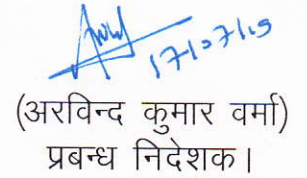 17/07/19
(अरविन्द कुमार वर्मा)
प्रबन्ध निदेशक।